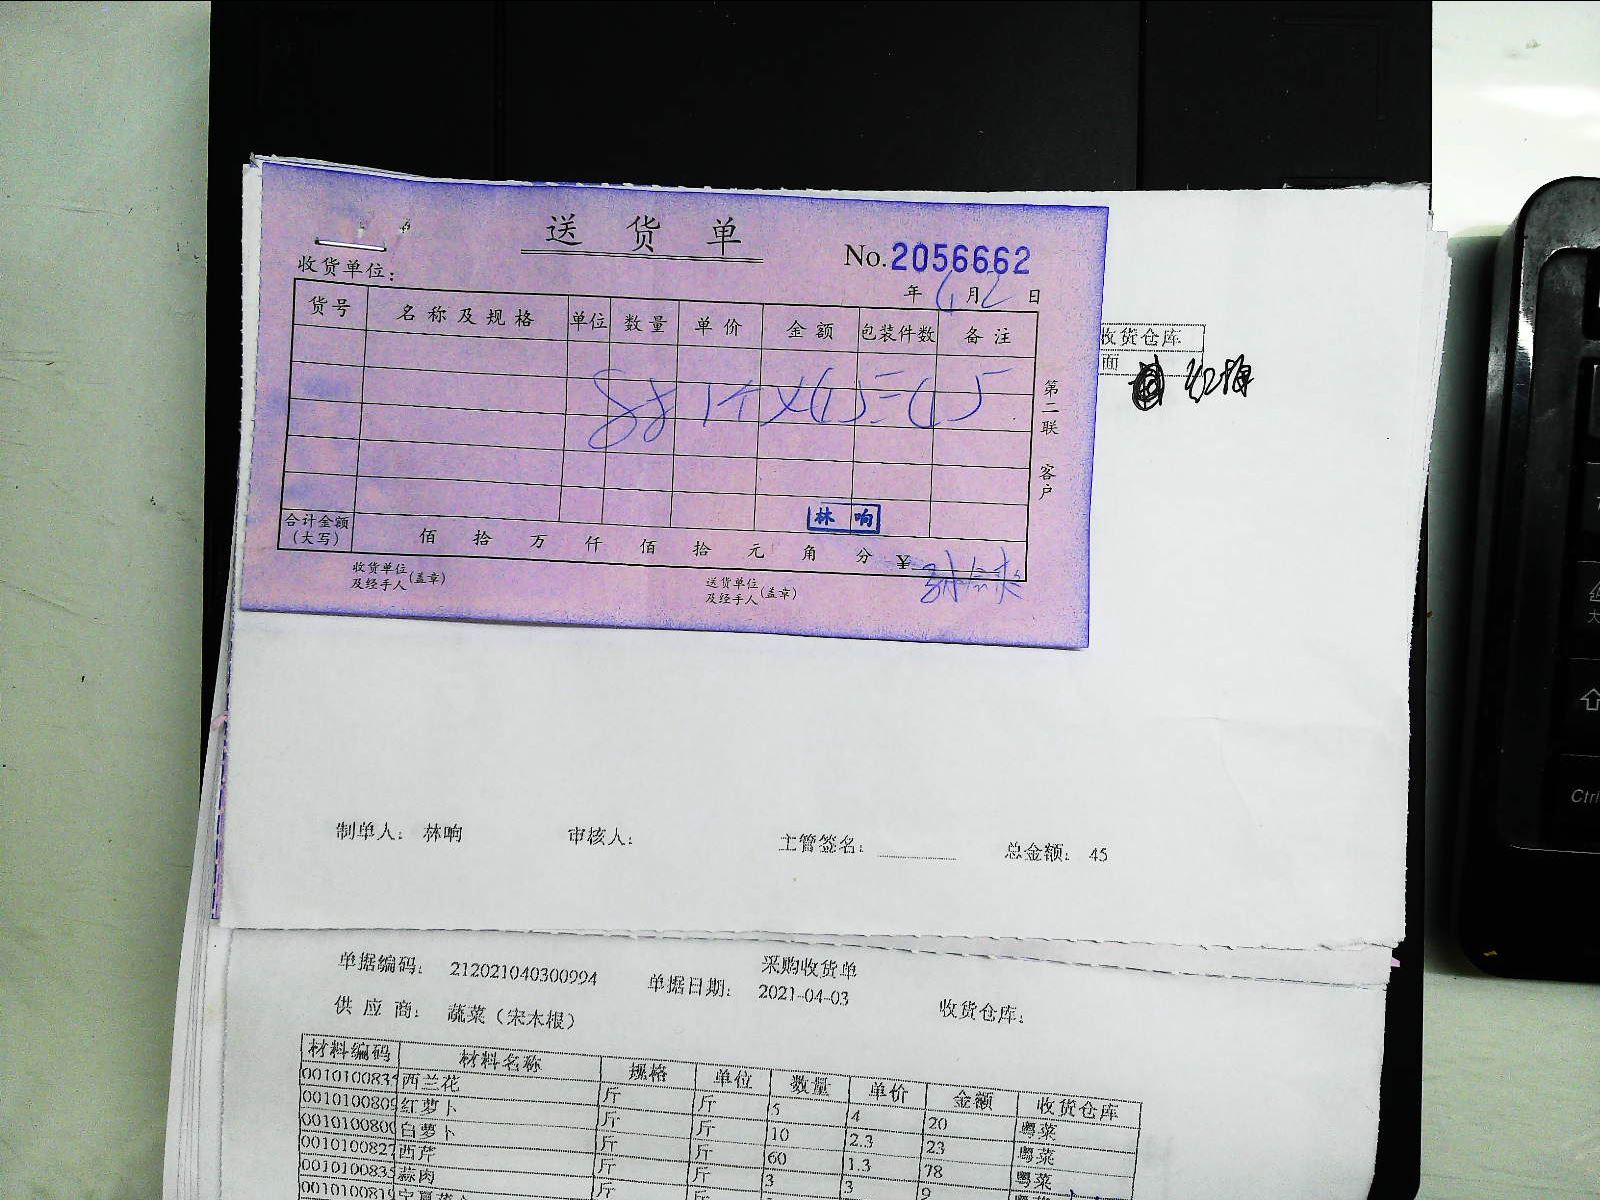 送货单
No.2056662
收货单位：
年 4月2日
货号 名称及规格 单位 数量 单价 金额 包装件数 备注
林响
合计金额（大写） 佰 拾 万 仟 佰 拾 元 角 分 ¥
收货单位及经手人（盖章） 送货单位及经手人（盖章）
第二联 客户
收货仓库
面
制单人： 林响 审核人： 主管签名： 总金额： 45
采购收货单
单据编码： 212021040300994 单据日期： 2021-04-03 收货仓库：
供应商： 蔬菜（宋木根）
材料编码 材料名称 规格 单位 数量 单价 金额 收货仓库
西兰花 斤 斤 5 4 20 粤菜
红萝卜 斤 斤 10 2.3 23 粤菜
白萝卜 斤 斤 60 1.3 78 粤菜
西芹 斤 斤 3 3 9
蒜肉 斤 斤